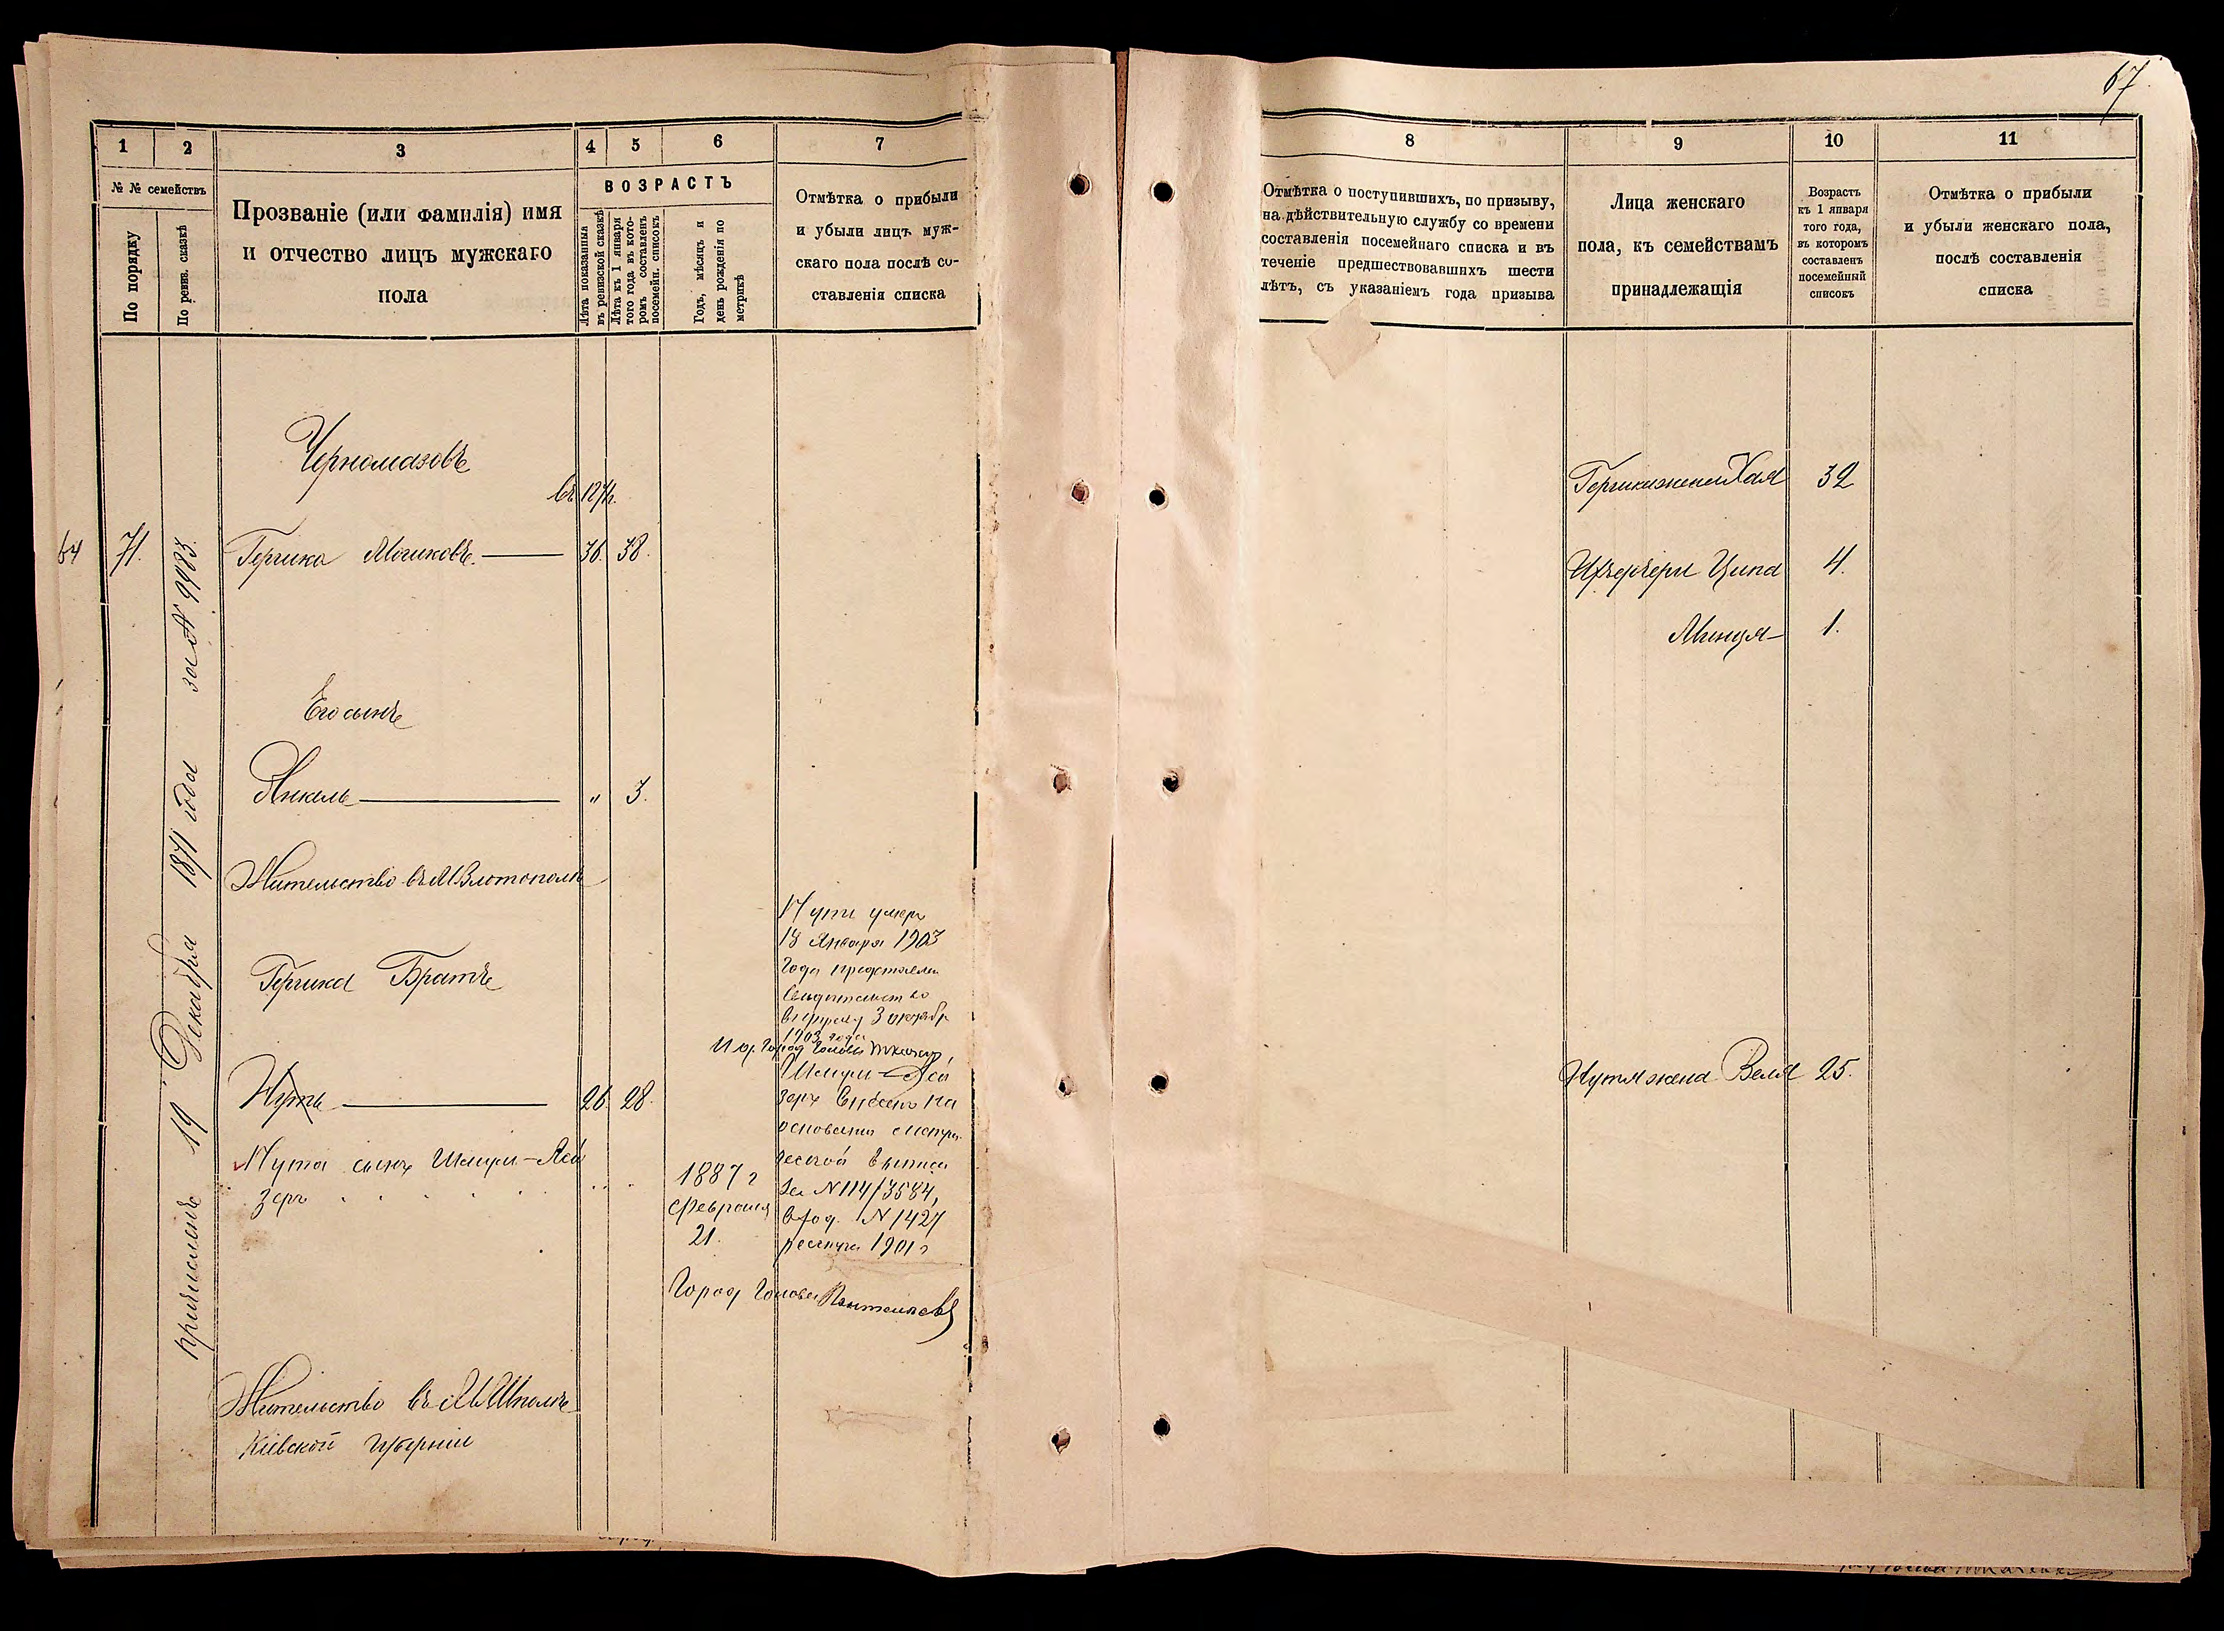 67
1
2
3
4
5
6
7
№ № семействъ
По порядку
По ревиз. сказкѣ
Прозваніе (или фамилія) имя
и отчество лицъ мужскаго
пола
ВОЗРАСТЪ
Лѣта показанныя
въ ревизской сказкѣ
Лѣта къ 1 января
того года въ кото-
ромъ составленъ
посемейн. списокъ
Годъ, мѣсяцъ и
день рожденія по
метрикѣ
Отмѣтка о прибыли
и убыли лицъ муж-
скаго пола послѣ со-
ставленія списка
Черномазовъ
въ 1874.
64
71.
Гершка Мошковъ.
36.
38.
причисленъ 19 Декабря 1871 года за № 9983.
Его сынъ
Янкель
"
3.
Жительство въ М. Златополѣ
Гершка Братъ
Нутъ
26.
28.
Нута сынъ Шмуль-Лей
зеръ
1887 г
Февраля
21.
Нута умеръ
18 Января 1903
года представлен
свидѣтельство
3 октяб
1903 года
Город Голова
Шмуль-Лей
зеръ внесенъ на
основаніи метри
ческой выписи
за № 114/3584,
вход. № 1427
1901 г
Город Голова
Жительство въ М. Шполѣ
Кіевской губерніи
8
9
10
11
Отмѣтка о поступившихъ, по призыву,
на дѣйствительную службу со времени
составленія посемейнаго списка и въ
теченіе предшествовавшихъ шести
лѣтъ, съ указаніемъ года призыва
Лица женскаго
пола, къ семействамъ
принадлежащія
Возрастъ
къ 1 января
того года,
въ которомъ
составленъ
посемейный
списокъ
Отмѣтка о прибыли
и убыли женскаго пола,
послѣ составленія
списка
Гершки жена Хая 32
Ихъ дочери Ципа 4.
Минця 1.
Нутя жена Веля 25.